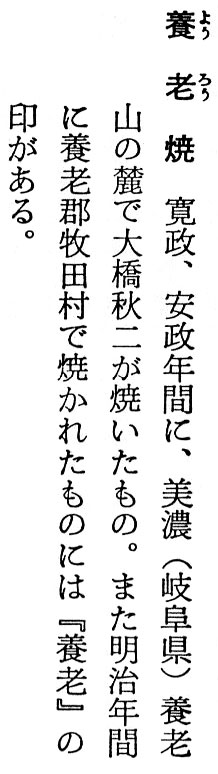 養老焼　寛政、安政年間に、美濃（岐阜県）養老
山の麓で大橋秋二が焼いたもの。また明治年間
に養老郡牧田村で焼かれたものには『養老』の
印がある。
よう
ろう